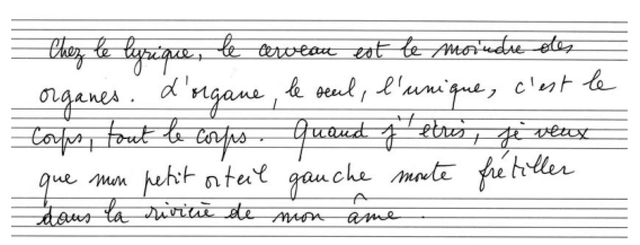 Chez le lyrique, le cerveau est le moindre des
organes. L'organe, le seul, l'unique, c'est le
corps, tout le corps. Quand j'écris, je veux
que mon petit orteil gauche monte frétiller
dans la rivière de mon âme.